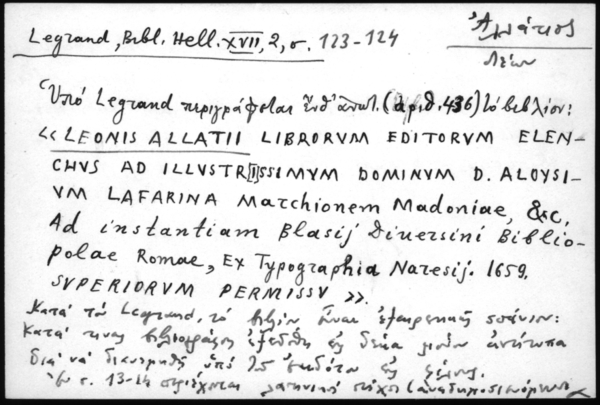 Legrand, Bibl. Hell. XVII, 2, σ. 123-124
Ἀλλάτιος
Λέων
Ὑπό Legrand περιγράφεται (ἀριθ. 436) τό βιβλίον:
«LEONIS ALLATII LIBRORVM EDITORVM ELEN-
CHVS AD ILLVSTR[I]SSIMVM DOMINVM D. ALOYSI-
VM LAFARINA Marchionem Madoniae, &c.
Ad instantiam Blasij Diversini Biblio-
polae Romae, Ex Typographia Naresij. 1659.
SVPERIORVM PERMISSV».
Κατά τόν Legrand, τό βιβλίον εἶναι ἐξαιρετικῶς σπάνιον:
Κατά τινας βιβλιογράφους ἐξεδόθη εἰς δέκα μόνον ἀντίτυπα
διά νά διανεμηθῇ ὑπό τοῦ ἐκδότου εἰς φίλους.
σ. 13-14 περιέχεται λατινικό